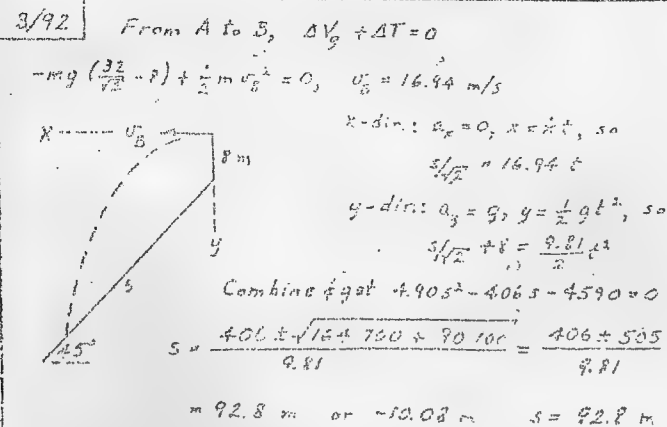 3/92
From A to B, ΔVg + ΔT = 0
-mg (32/√2 - 8) + 1/2 m v_B² = 0, v_B = 16.94 m/s
x-dir.: a_x = 0, x = ẋt, so
s/√2 = 16.94 t
x v_B
8 m
y-dir.: a_y = g, y = 1/2 gt², so
s/√2 + 8 = 9.81/2 t²
y
Combine & get 4.90s² - 406s - 4590 = 0
s
45°
s = (406 ± √(164 700 + 90 100))/9.81 = (406 ± 505)/9.81
= 92.8 m or -10.08 m s = 92.8 m